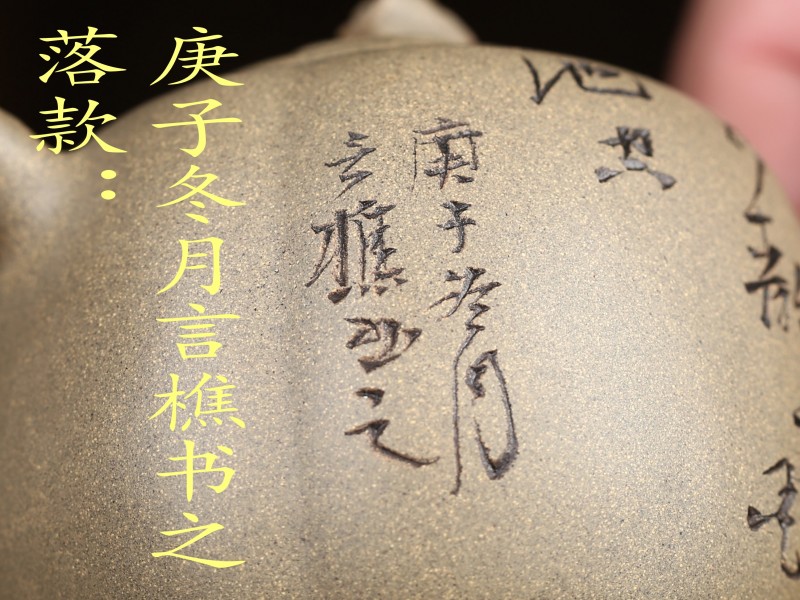 落款：
庚子冬月言樵书之
庚子冬月
言樵书之